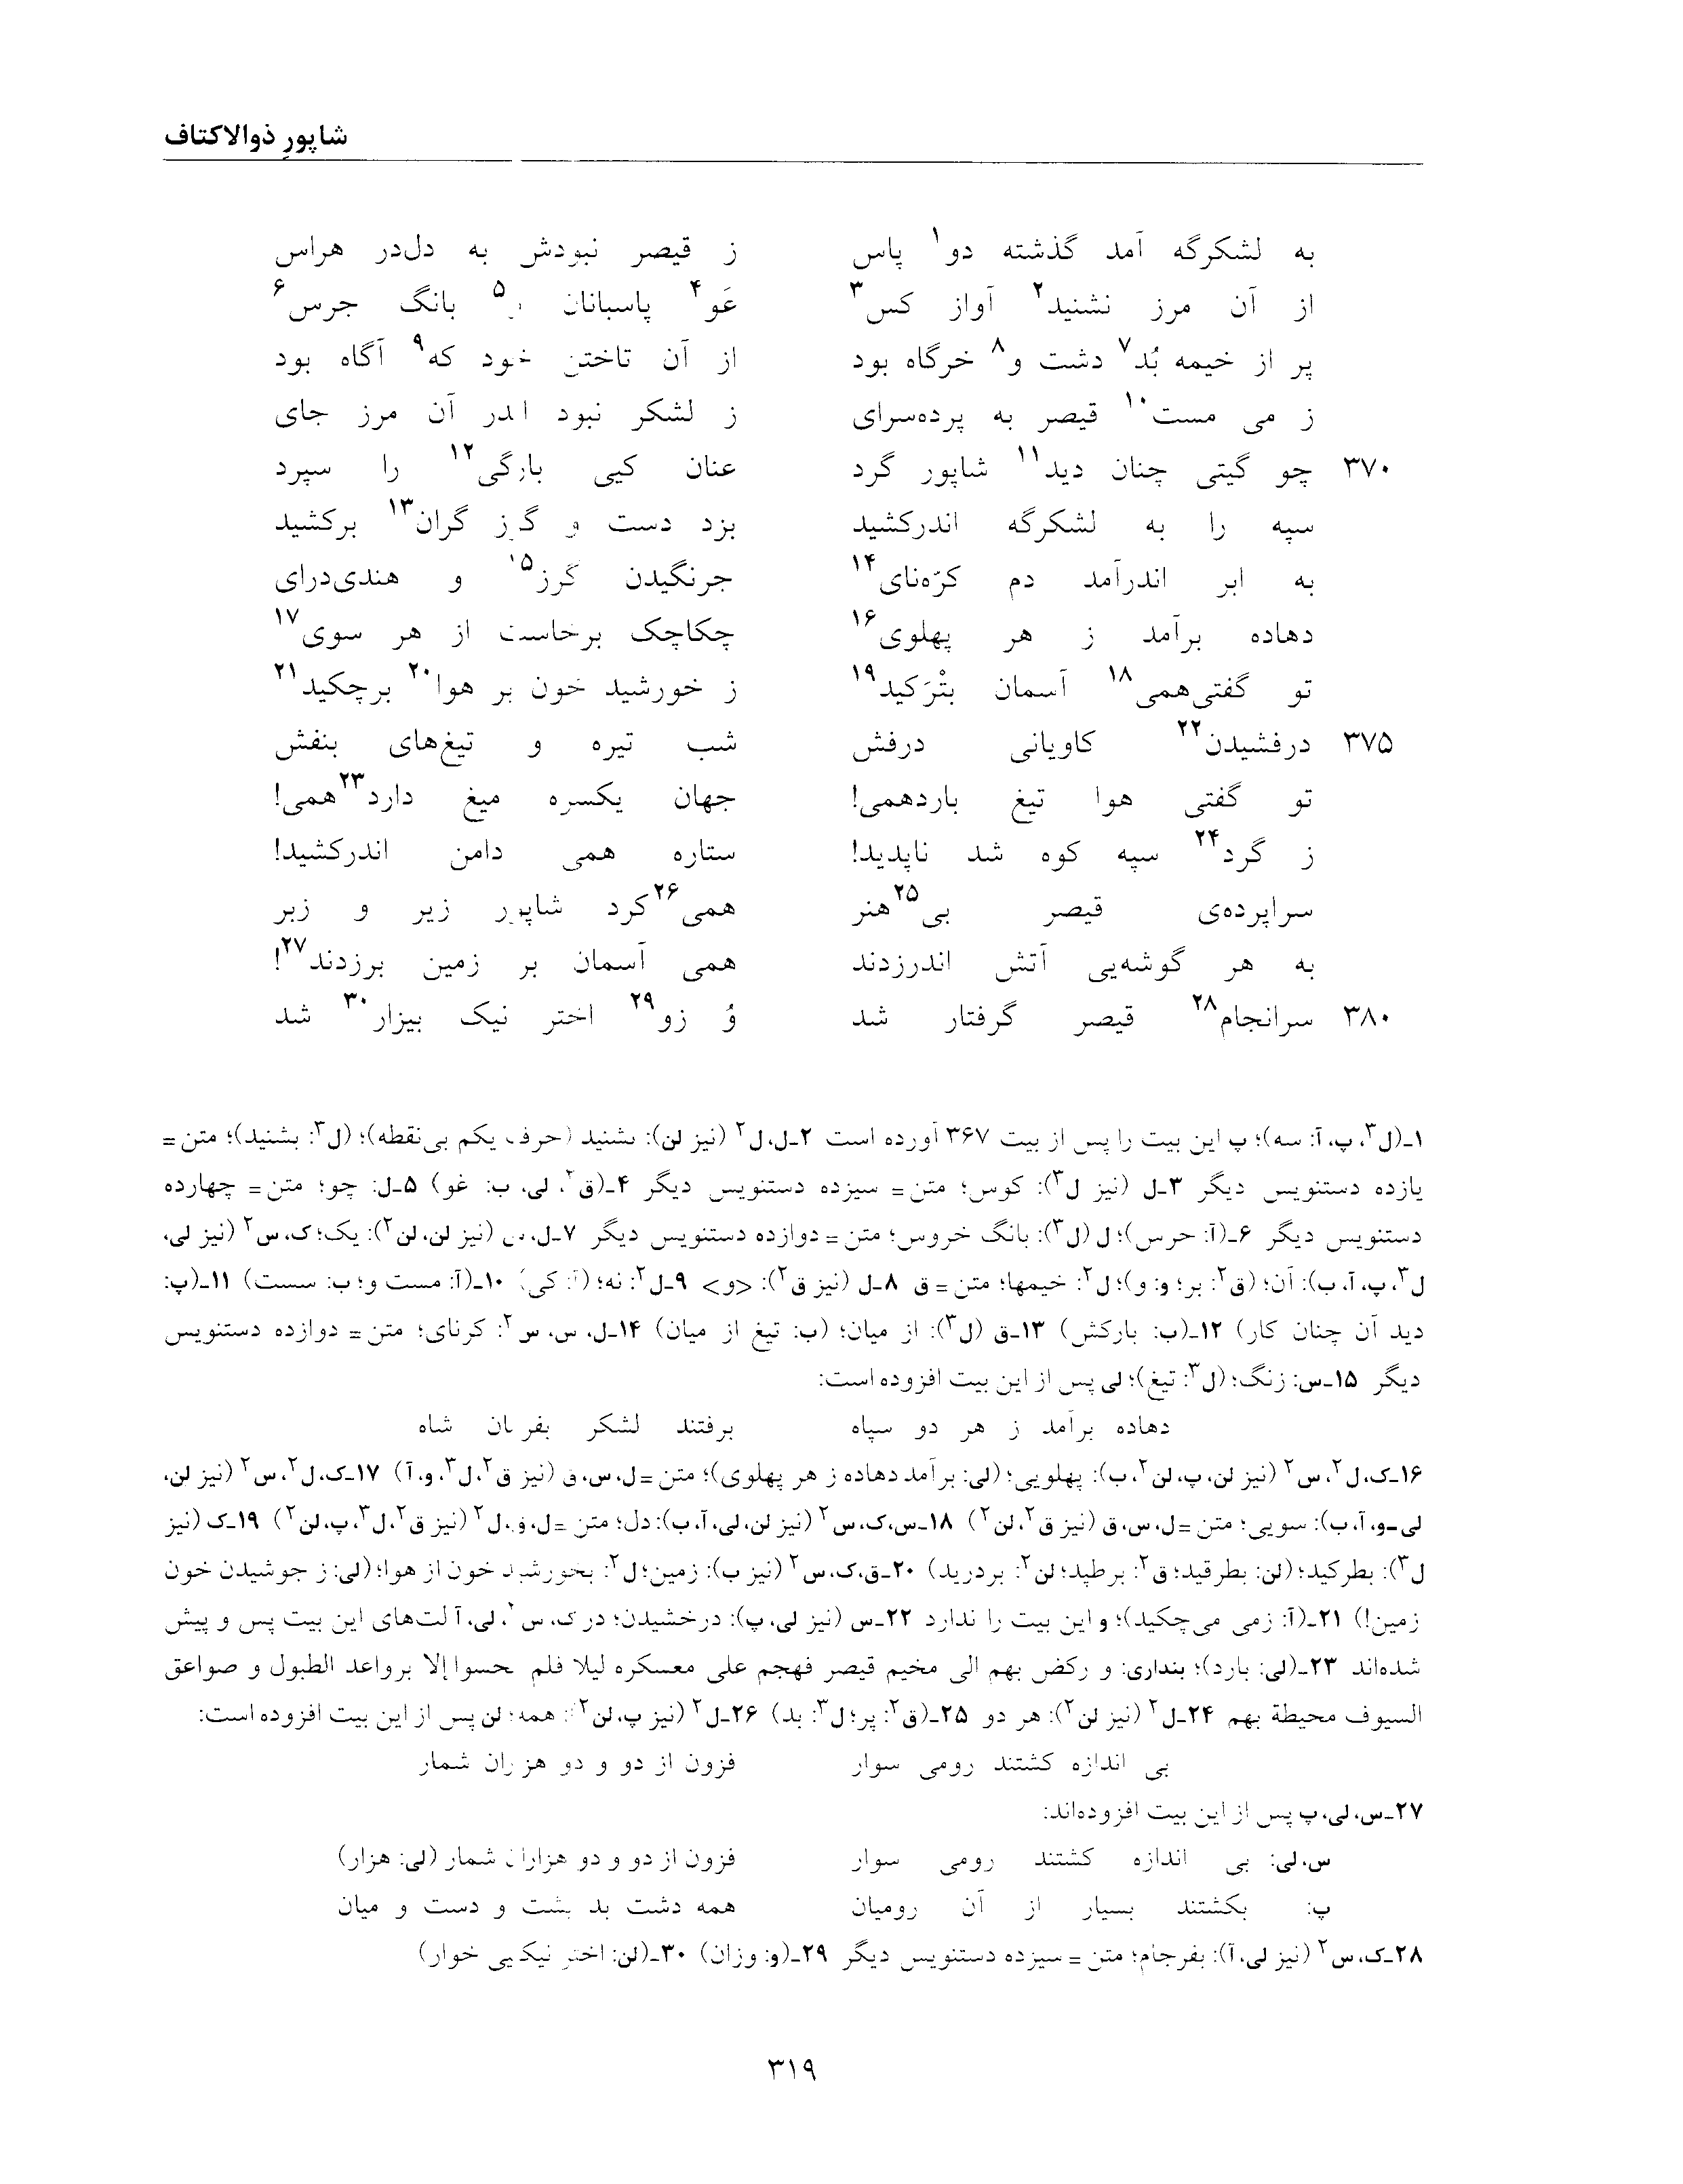 شاپورِ ذوالاکتاف
به لشکرگه آمد گذشته دو۱ پاس ز قیصر نبودش به دل‌در هراس
از آن مرز نشنید۲ آواز کس۳ غَو۴ پاسبانان ۵ بانگ جرس۶
پر از خیمه بُد۷ دشت و۸ خرگاه بود از آن تاختن خود که۹ آگاه بود
ز می مست۱۰ قیصر به پرده‌سرای ز لشکر نبود اندر آن مرز جای
۳۷۰ چو گیتی چنان دید۱۱ شاپور گرد عنان کیی بارگی۱۲ را سپرد
سپه را به لشکرگه اندرکشید بزد دست و گرز گران۱۳ برکشید
به ابر اندرآمد دم کرّه‌نای۱۴ جرنگیدن گرز۱۵ و هندی‌درای
دهاده برآمد ز هر پهلوی۱۶ چکاچک برخاست از هر سوی۱۷
تو گفتی‌همی۱۸ آسمان بتْرَکید۱۹ ز خورشید خون بر هوا۲۰ برچکید۲۱
۳۷۵ درفشیدن۲۲ کاویانی درفش شب تیره و تیغ‌های بنفش
تو گفتی هوا تیغ باردهمی! جهان یکسره میغ دارد۲۳همی!
ز گرد۲۴ سپه کوه شد ناپدید! ستاره همی دامن اندرکشید!
سراپرده‌ی قیصر بی۲۵هنر همی۲۶کرد شاپور زیر و زبر
به هر گوشه‌یی آتش اندرزدند همی آسمان بر زمین برزدند۲۷!
۳۸۰ سرانجام۲۸ قیصر گرفتار شد وُ زو۲۹ اختر نیک بیزار۳۰ شد
۱ـ(ل۳، پ، آ: سه)؛ پ این بیت را پس از بیت ۳۶۷ آورده است ۲ـ‌ل،ل۲ (نیز لن): ىشنید (حرف یکم بی‌نقطه)؛ (ل۳: بشنید)؛ متن=
یازده دستنویس دیگر ۳ـ‌ل (نیز ل۳): کوس؛ متن= سیزده دستنویس دیگر ۴ـ(ق۲، لی، ب: غو) ۵ـ‌ل: چو؛ متن= چهارده
دستنویس دیگر ۶ـ(آ: حرس)؛ ل (ل۳): بانگ خروس؛ متن= دوازده دستنویس دیگر ۷ـ‌ل، س (نیز لن، لن۲): یک؛ ک، س۲ (نیز لی،
ل۳، پ، آ، ب): آن؛ (ق۲: بر؛ و: و)؛ ل۲: خیمها؛ متن= ق ۸ـ‌ل (نیز ق۲): <و> ۹ـ‌ل۲: نه؛ (آ: کی) ۱۰ـ(آ: مست و؛ ب: سست) ۱۱ـ(پ:
دید آن چنان کار) ۱۲ـ(ب: بارکش) ۱۳ـ‌ق (ل۳): از میان؛ (ب: تیغ از میان) ۱۴ـ‌ل، س، س۲: کرنای؛ متن= دوازده دستنویس
دیگر ۱۵ـ‌س: زنگ؛ (ل۳: تیغ)؛ لی پس از این بیت افزوده است:
دهاده برآمد ز هر دو سپاه برفتند لشکر بفرمان شاه
۱۶ـ‌ک، ل۲، س۲ (نیز لن، پ، لن۲، ب): پهلویی؛ (لی: برآمد دهاده ز هر پهلوی)؛ متن= ل، س، ق (نیز ق۲، ل۳، و، آ) ۱۷ـ‌ک، ل۲، س۲ (نیز لن،
لی‌ـ‌و، آ، ب): سویی؛ متن= ل، س، ق (نیز ق۲، لن۲) ۱۸ـ‌س، ک، س۲ (نیز لن، لی، آ، ب): دل؛ متن= ل، ق، ل۲ (نیز ق۲، ل۳، پ، لن۲) ۱۹ـ‌ک (نیز
ل۳): بطرکید؛ (لن: بطرقید؛ ق۲: برطپد؛ لن۲: بردرید) ۲۰ـ‌ق، ک، س۲ (نیز ب): زمین؛ ل۲: بخورشید خون از هوا؛ (لی: ز جوشیدن خون
زمین!) ۲۱ـ(آ: زمی می‌چکید)؛ و این بیت را ندارد ۲۲ـ‌س (نیز لی، پ): درخشیدن؛ در ک، س۲، لی، آ لت‌های این بیت پس و پیش
شده‌اند ۲۳ـ(لی: بارد)؛ بنداری: و رکض بهم الی مخیم قیصر فهجم علی معسکره لیلا فلم یحسوا إلا برواعد الطبول و صواعق
السیوف محیطة بهم ۲۴ـ‌ل۲ (نیز لن۲): هر دو ۲۵ـ(ق۲: پر؛ ل۳: بد) ۲۶ـ‌ل۲ (نیز پ، لن۲): همه؛ لن پس از این بیت افزوده است:
بی اندازه کشتند رومی سوار فزون از دو و دو هزاران شمار
۲۷ـ‌س، لی، پ پس از این بیت افزوده‌اند:
س، لی: بی اندازه کشتند رومی سوار فزون از دو و دو هزاران شمار (لی: هزار)
پ: بکشتند بسیار از آن رومیان همه دشت بد پشت و دست و میان
۲۸ـ‌ک، س۲ (نیز لی، آ): بفرجام؛ متن= سیزده دستنویس دیگر ۲۹ـ(و: وزان) ۳۰ـ(لن: اختر نیکیی خوار)
۳۱۹